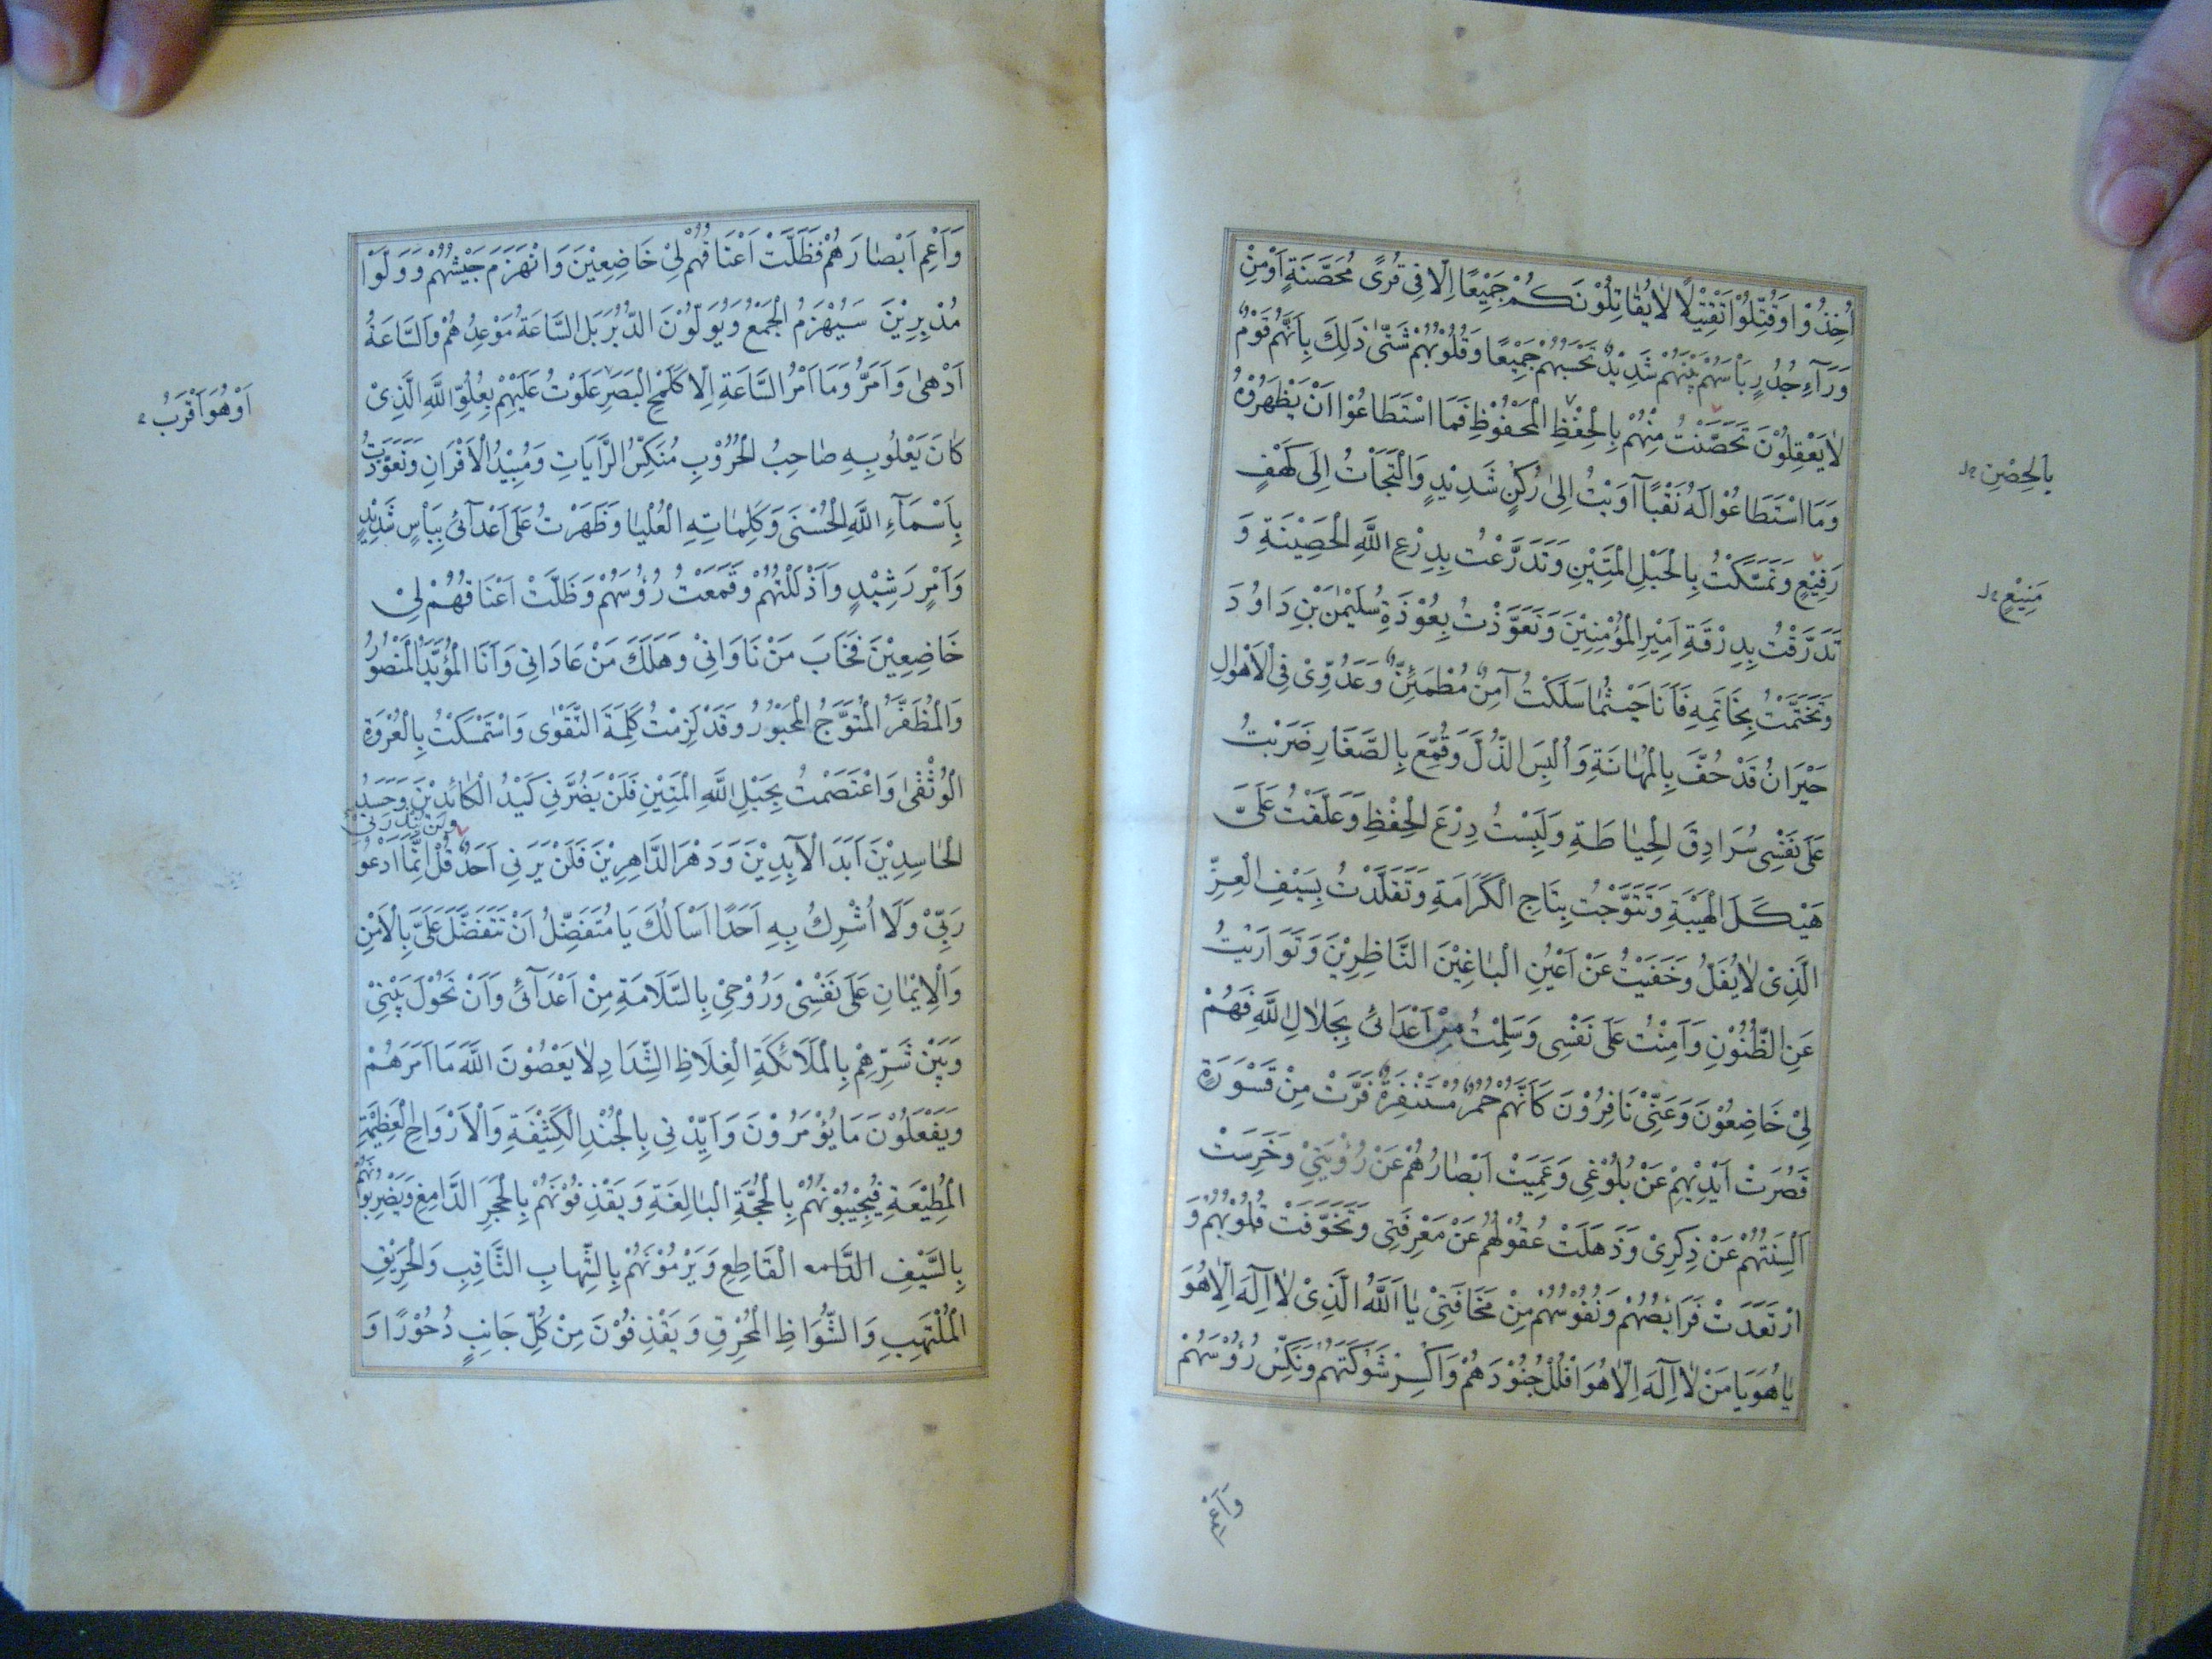 اُخِذُوْا وَقُتِّلُوْا تَقْتِيْلًا لَا يُقَاتِلُوْنَكُمْ جَمِيْعًا اِلَّا فِى قُرًى مُحَصَّنَةٍ اَوْ مِنْ
وَرَآءِ جُدُرٍ بَاْسُهُمْ بَيْنَهُمْ شَدِيْدٌ تَحْسَبُهُمْ جَمِيْعًا وَقُلُوْبُهُمْ شَتّٰى ذٰلِكَ بِاَنَّهُمْ قَوْمٌ
لَا يَعْقِلُوْنَ تَحَصَّنْتُ مِنْهُمْ بِالْحِفْظِ الْمَحْفُوْظِ فَمَا اسْتَطَاعُوْا اَنْ يَظْهَرُوْهُ
بِالْحِصْنِ
وَمَا اسْتَطَاعُوْا لَهُ نَقْبًا آوَيْتُ اِلٰى رُكْنٍ شَدِيْدٍ وَالْتَجَأْتُ اِلَى كَهْفٍ
رَفِيْعٍ وَتَمَسَّكْتُ بِالْحَبْلِ الْمَتِيْنِ وَتَدَرَّعْتُ بِدِرْعِ اللَّهِ الْحَصِيْنَةِ وَ
مَنِيْعٍ
تَدَرَّقْتُ بِدِرْقَةِ اَمِيْرِ الْمُؤْمِنِيْنَ وَتَعَوَّذْتُ بِعُوْذَةِ سُلَيْمٰنَ بْنِ دَاوُدَ
وَتَخَتَّمْتُ بِخَاتَمِهِ فَاَنَا حَيْثُمَا سَلَكْتُ آمِنٌ مُطْمَئِنٌّ وَعَدُوِّىْ فِى الْاَهْوَالِ
حَيْرَانُ قَدْ حُفَّ بِالْمَهَانَةِ وَاُلْبِسَ الذُّلَّ وَقُمِّعَ بِالصَّغَارِ ضَرَبْتُ
عَلَى نَفْسِى سُرَادِقَ الْحِيَاطَةِ وَلَبِسْتُ دِرْعَ الْحِفْظِ وَعَلَّقْتُ عَلَىَّ
هَيْكَلَ الْهَيْبَةِ وَتَتَوَّجْتُ بِتَاجِ الْكَرَامَةِ وَتَقَلَّدْتُ بِسَيْفِ الْعِزِّ
الَّذِىْ لَا يُفَلُّ وَخَفَيْتُ عَنْ اَعْيُنِ الْبَاغِيْنَ النَّاظِرِيْنَ وَتَوَارَيْتُ
عَنِ الظُّنُوْنِ وَآمِنْتُ عَلَى نَفْسِى وَسَلِمْتُ مِنْ اَعْدَائِى بِجَلَالِ اللَّهِ فَهُمْ
لِىْ خَاضِعُوْنَ وَعَنِّىْ نَافِرُوْنَ كَاَنَّهُمْ حُمُرٌ مُسْتَنْفِرَةٌ فَرَّتْ مِنْ قَسْوَرَةٍ
قَصُرَتْ اَيْدِيْهِمْ عَنْ بُلُوْغِى وَعَمِيَتْ اَبْصَارُهُمْ عَنْ رُؤْيَتِىْ وَخَرِسَتْ
اَلْسِنَتُهُمْ عَنْ ذِكْرِىْ وَذَهَلَتْ عُقُوْلُهُمْ عَنْ مَعْرِفَتِى وَتَخَوَّفَتْ قُلُوْبُهُمْ وَ
ارْتَعَدَتْ فَرَائِصُهُمْ وَنُفُوْسُهُمْ مِنْ مَخَافَتِىْ يَا اَللَّهُ الَّذِىْ لَا اِلٰهَ اِلَّا هُوَ
يَا هُوَ يَا مَنْ لَا اِلٰهَ اِلَّا هُوَ افْلُلْ جُنُوْدَهُمْ وَاكْسِرْ شَوْكَتَهُمْ وَنَكِّسْ رُؤُسَهُمْ
وَاَعْمِ
وَاَعْمِ اَبْصَارَهُمْ فَظَلَّتْ اَعْنَاقُهُمْ لِىْ خَاضِعِيْنَ وَانْهَزَمَ جَيْشُهُمْ وَوَلَّوْا
مُدْبِرِيْنَ سَيُهْزَمُ الْجَمْعُ وَيُوَلُّوْنَ الدُّبُرَ بَلِ السَّاعَةُ مَوْعِدُهُمْ وَالسَّاعَةُ
اَدْهٰى وَاَمَرُّ وَمَا اَمْرُ السَّاعَةِ اِلَّا كَلَمْحِ الْبَصَرِ عَلَوْتُ عَلَيْهِمْ بِعُلُوِّ اللَّهِ الَّذِىْ
اَوْ هُوَ اَقْرَبُ
كَانَ يَعْلُو بِهِ صَاحِبُ الْحُرُوْبِ مُنَكِّسُ الرَّايَاتِ وَمُبِيْدُ الْاَقْرَانِ وَتَعَوَّذْتُ
بِاَسْمَآءِ اللَّهِ الْحُسْنَى وَكَلِمَاتِهِ الْعُلْيَا وَظَهَرْتُ عَلَى اَعْدَآئِى بِبَأْسٍ شَدِيْدٍ
وَاَمْرٍ رَشِيْدٍ وَاَذْلَلْتُهُمْ وَقَمَعْتُ رُؤُسَهُمْ وَظَلَّتْ اَعْنَاقُهُمْ لِىْ
خَاضِعِيْنَ فَخَابَ مَنْ نَاوَانِىْ وَهَلَكَ مَنْ عَادَانِى وَاَنَا الْمُؤَيَّدُ الْمَنْصُوْرُ
وَالْمُظَفَّرُ الْمُتَوَّجُ الْمَحْبُوْرُ وَقَدْ لَزِمْتُ كَلِمَةَ التَّقْوٰى وَاسْتَمْسَكْتُ بِالْعُرْوَةِ
الْوُثْقٰى وَاعْتَصَمْتُ بِحَبْلِ اللَّهِ الْمَتِيْنِ فَلَنْ يَضُرَّنِى كَيْدُ الْكَائِدِيْنَ وَحَسَدُ
الْحَاسِدِيْنَ اَبَدَ الْآبِدِيْنَ وَدَهْرَ الدَّاهِرِيْنَ فَلَنْ يَرَنِى اَحَدٌ قُلْ اِنَّمَا اَدْعُو
رَبِّىْ وَلَا اُشْرِكُ بِهِ اَحَدًا اَسْاَلُكَ يَا مُتَفَضِّلُ اَنْ تَتَفَضَّلَ عَلَىَّ بِالْاَمْنِ
وَالْاِيْمَانِ عَلَى نَفْسِىْ وَرُوْحِىْ بِالسَّلَامَةِ مِنْ اَعْدَآئِى وَاَنْ تَحُوْلَ بَيْنِىْ
وَبَيْنَ شَرِّهِمْ بِالْمَلَائِكَةِ الْغِلَاظِ الشِّدَادِ لَا يَعْصُوْنَ اللَّهَ مَا اَمَرَهُمْ
وَيَفْعَلُوْنَ مَا يُؤْمَرُوْنَ وَاَيِّدْنِى بِالْجُنْدِ الْكَثِيْفَةِ وَالْاَرْوَاحِ الْعَظِيْمَةِ
الْمُطِيْعَةِ فَيُجِيْبُوْنَهُمْ بِالْحُجَّةِ الْبَالِغَةِ وَيَقْذِفُوْنَهُمْ بِالْحَجَرِ الدَّامِغِ وَيَضْرِبُوْنَهُمْ
بِالسَّيْفِ الْقَاطِعِ وَيَرْمُوْنَهُمْ بِالشِّهَابِ الثَّاقِبِ وَالْحَرِيْقِ
الْمُلْتَهِبِ وَالشُّوَاظِ الْمُحْرِقِ وَيَقْذِفُوْنَ مِنْ كُلِّ جَانِبٍ دُحُوْرًا وَ